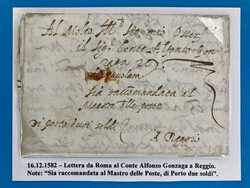 Al Molto Ill.
il Sig. Conte Alfonso Gon
zaga
sia raccomandata al
Mastro delle poste
di porto duoi soldi
A Reggio
16.12.1582 – Lettera da Roma al Conte Alfonso Gonzaga a Reggio.
Note: “Sia raccomandata al Mastro delle Poste, di Porto due soldi”.